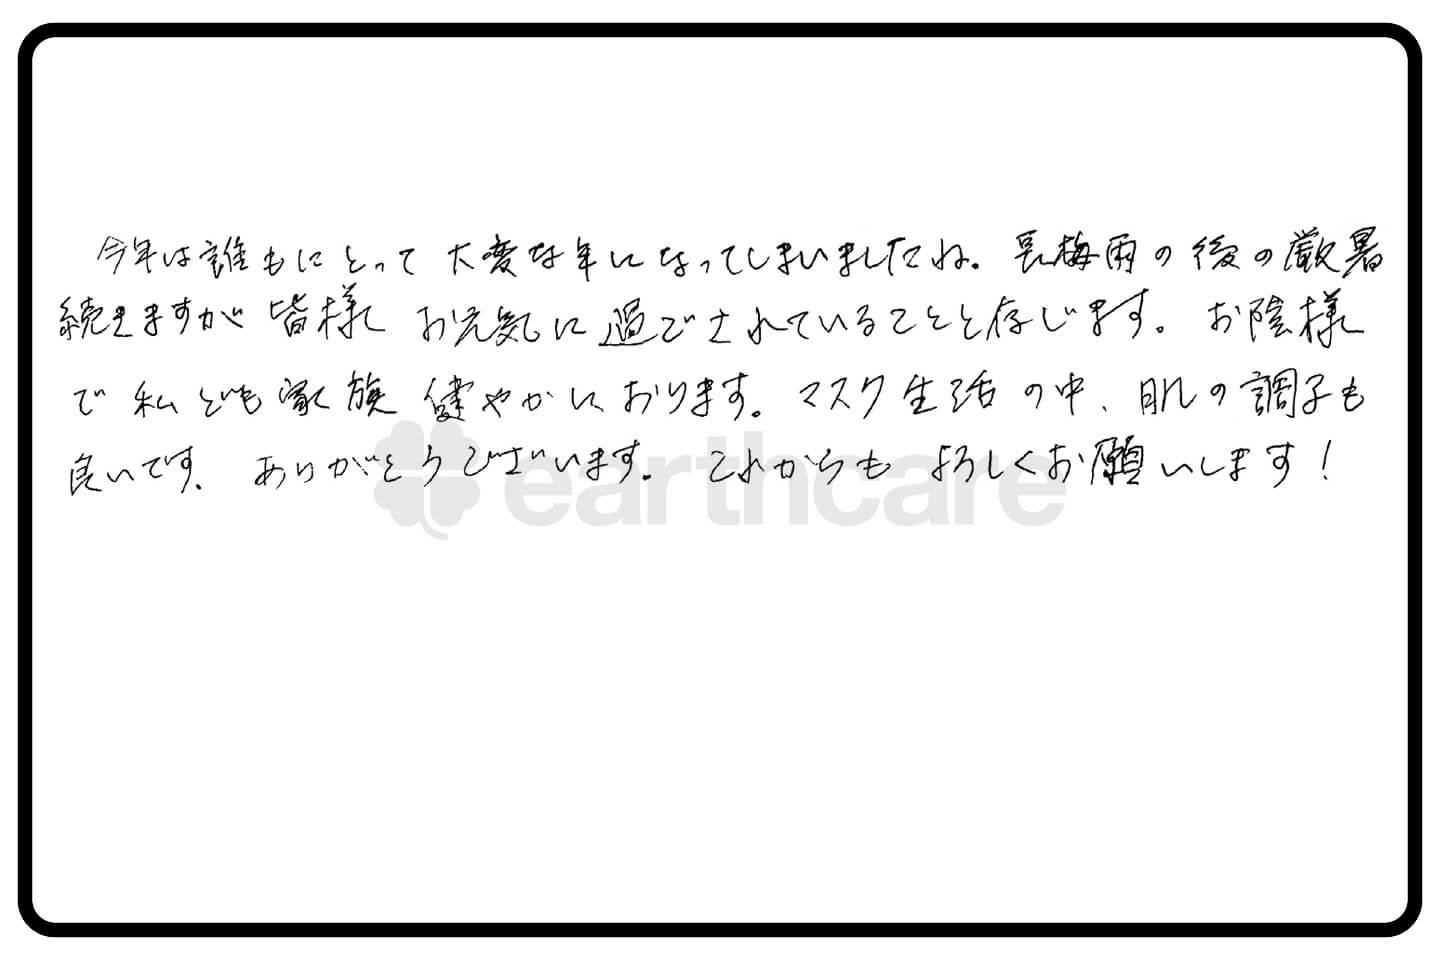 今年は誰もにとって大変な年になってしまいましたね。長梅雨の後の厳暑
続きますが皆様お元気に過ごされていることと存じます。お陰様
で私ども家族健やかにおります。マスク生活の中、肌の調子も
良いです。ありがとうございます。これからもよろしくお願いします！
earthcare